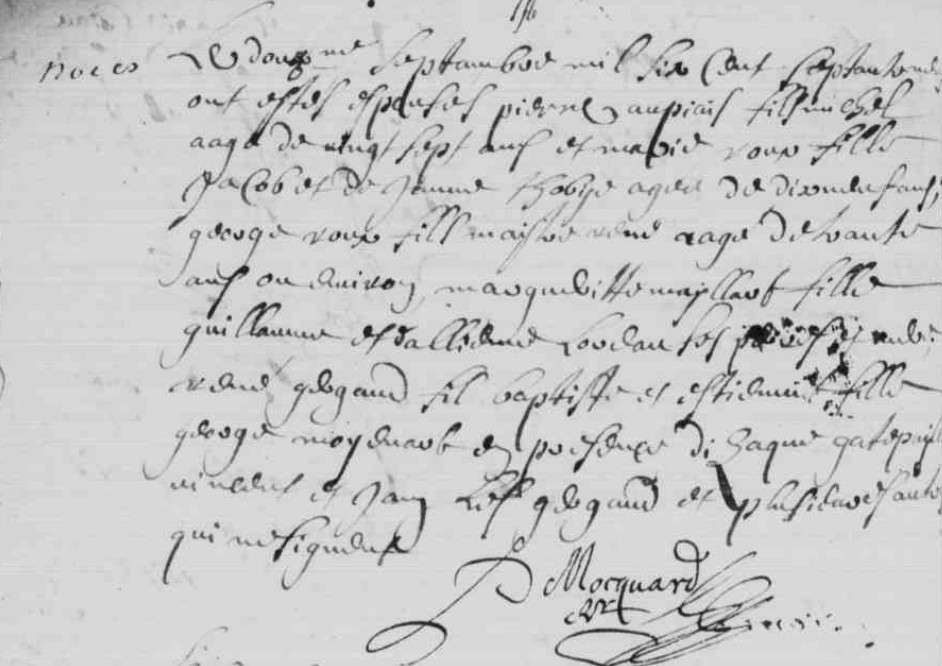 noces
Le douzme septambre mil six cent septante
ont estés espousés pierre aupiais fils michel
aagé de vingt sept ans et marie roux fille
Jacob et de Jeanne agee de dixneuf ans
george roux fils maistre rené aagé de trante
ans ou environ margueritte maillart fille
guillaume et dallienne ses
rené gegand fil baptiste et estiennette fille
george moyenart en presence di Jaque gatepin
vincent et Jan les gegand et plusieurs autre
qui ne signent
P Mocquard